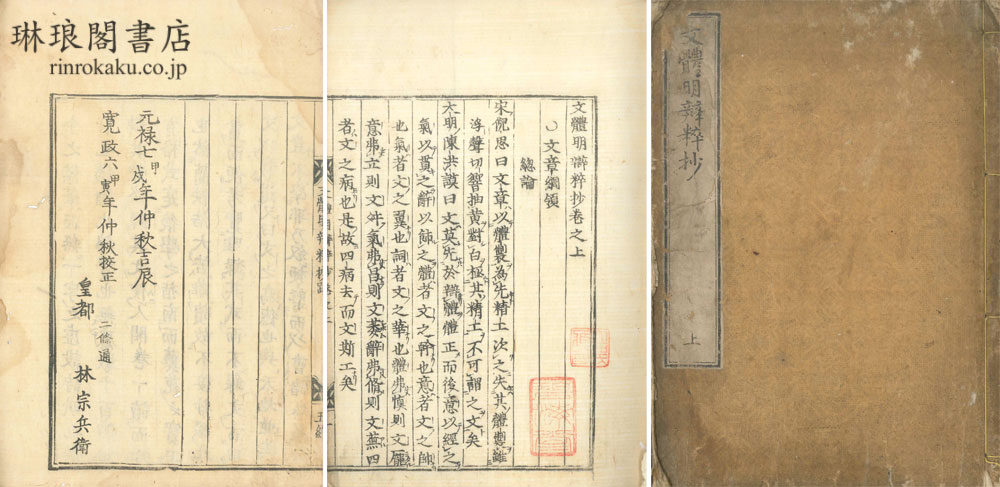 琳琅閣書店
rinrokaku.co.jp
元禄七甲戌年仲秋吉辰
寛政六甲寅年仲秋校正
皇都 二條通 林宗兵衛
文體明辯粹抄卷之上
〇文章綱領
總論
宋倪思曰文章以體製為先精工次之失其體製雖
浮聲切響抽黃對白極其精工不可謂之文矣
大明陳洪謨曰文莫先於辯體體正而後意以經之
氣以貫之辭以飾之體者文之幹也意者文之帥
也氣者文之翼也詞者文之華也體弗慎則文龐
意弗立則文舛氣弗昌則文萎辭弗脩則文蕪四
者文之病也是故四病去而文斯工矣
文體明辯粹抄
上